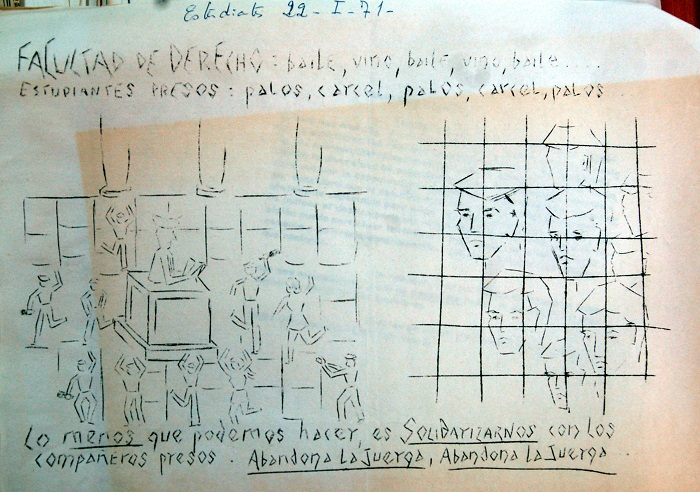 Estudiantes 22-I-71-
FACULTAD DE DERECHO: baile, vino, baile, vino, baile....
ESTUDIANTES PRESOS: palos, carcel, palos, carcel, palos...
Lo menos que podemos hacer, es SOLIDARIZARNOS con los
compañeros presos. Abandona la Juerga, Abandona la Juerga